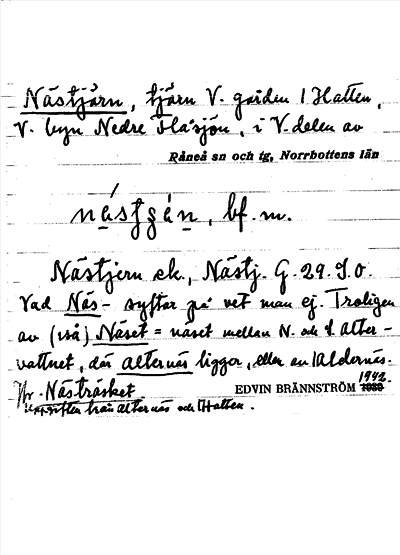 Nästjärn, tjärn V. gården 1 Hatten,
V. byn Nedre Flåsjön, i V. delen av
Råneå sn och tg, Norrbottens län
bf. m.
Nästjern ek., Nästj. G. 29. S. O.
Vad Näs- syftar på vet man ej. Troligen
av (två) Näset = näset mellan N. och S. Alter-
vattnet, där Alternäs ligger, eller av
Jfr. Nästräsket.
EDVIN BRÄNNSTRÖM 1942
Uppgifter från Alternäs och Hatten.